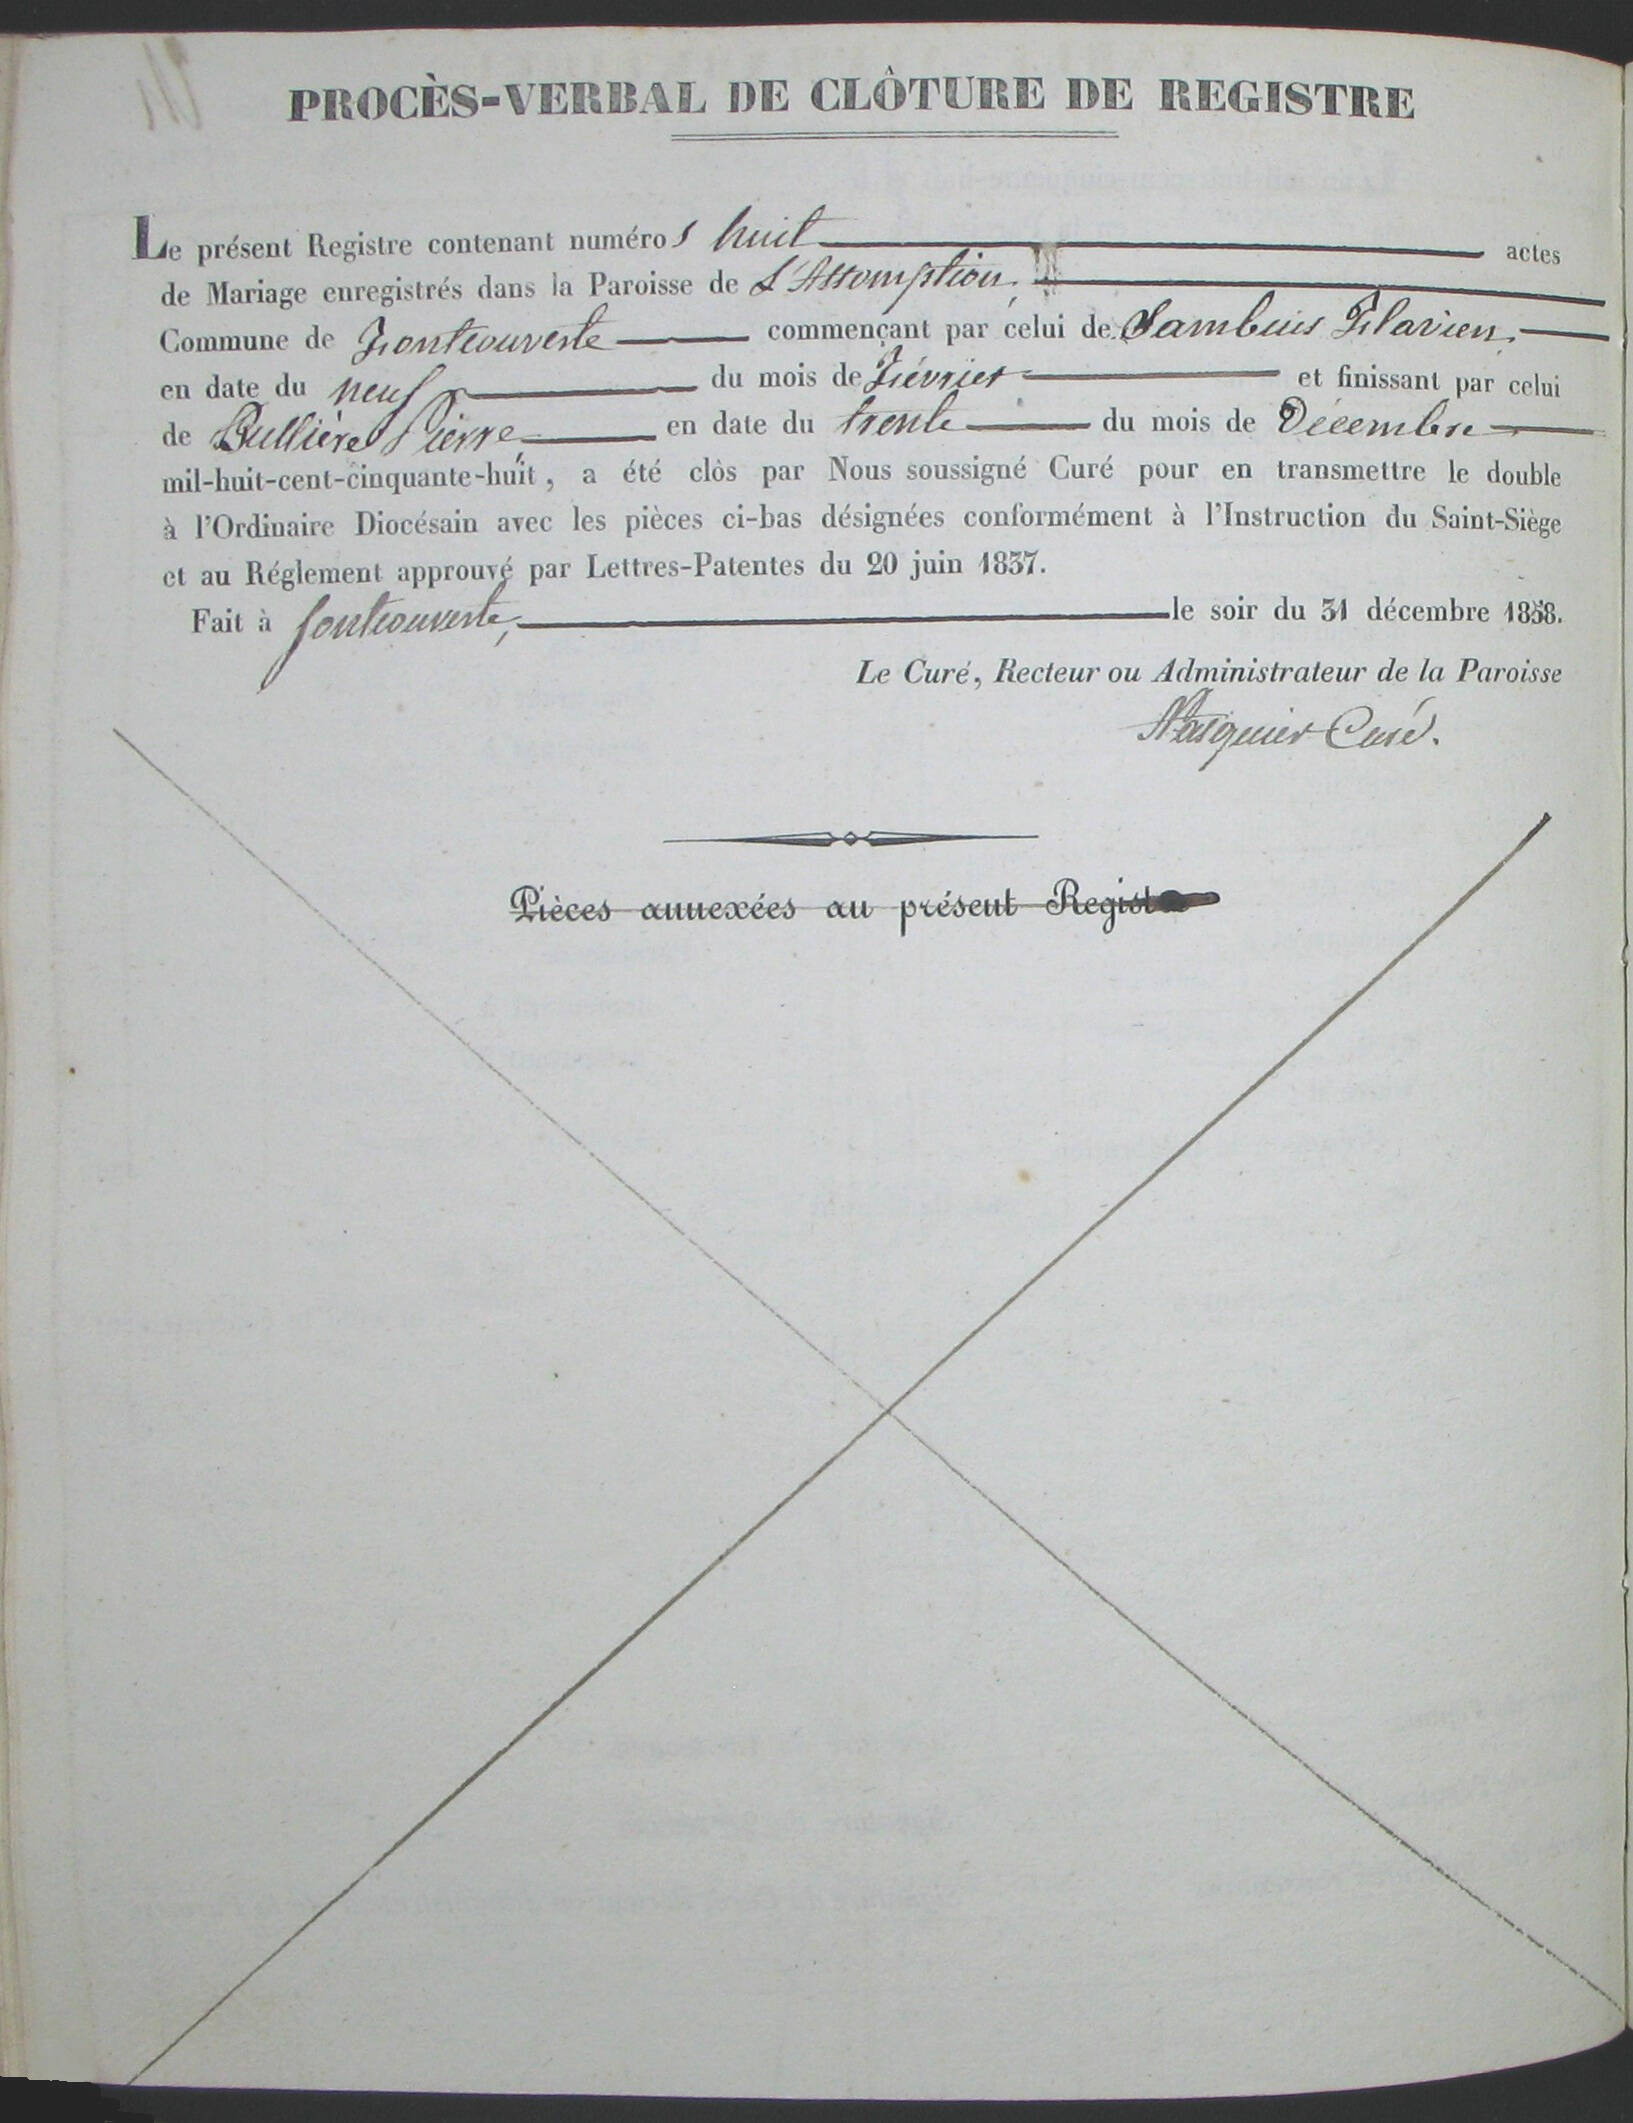 PROCÈS-VERBAL DE CLÔTURE DE REGISTRE
Le présent Registre contenant numéros huit actes
de Mariage enregistrés dans la Paroisse de L'Assomption,
Commune de Fontcouverte commençant par celui de Sambuis Flavien,
en date du neuf du mois de Février et finissant par celui
de Bullière Pierre, en date du trente du mois de Décembre
mil-huit-cent-cinquante-huit, a été clòs par Nous soussigné Curé pour en transmettre le double
à l'Ordinaire Diocésain avec les pièces ci-bas désignées conformément à l'Instruction du Saint-Siège
et au Réglement approuvé par Lettres-Patentes du 20 juin 1837.
Fait à fontcouverte, le soir du 31 décembre 1858.
Le Curé, Recteur ou Administrateur de la Paroisse
Curé.
Pièces annexées au présent Regist